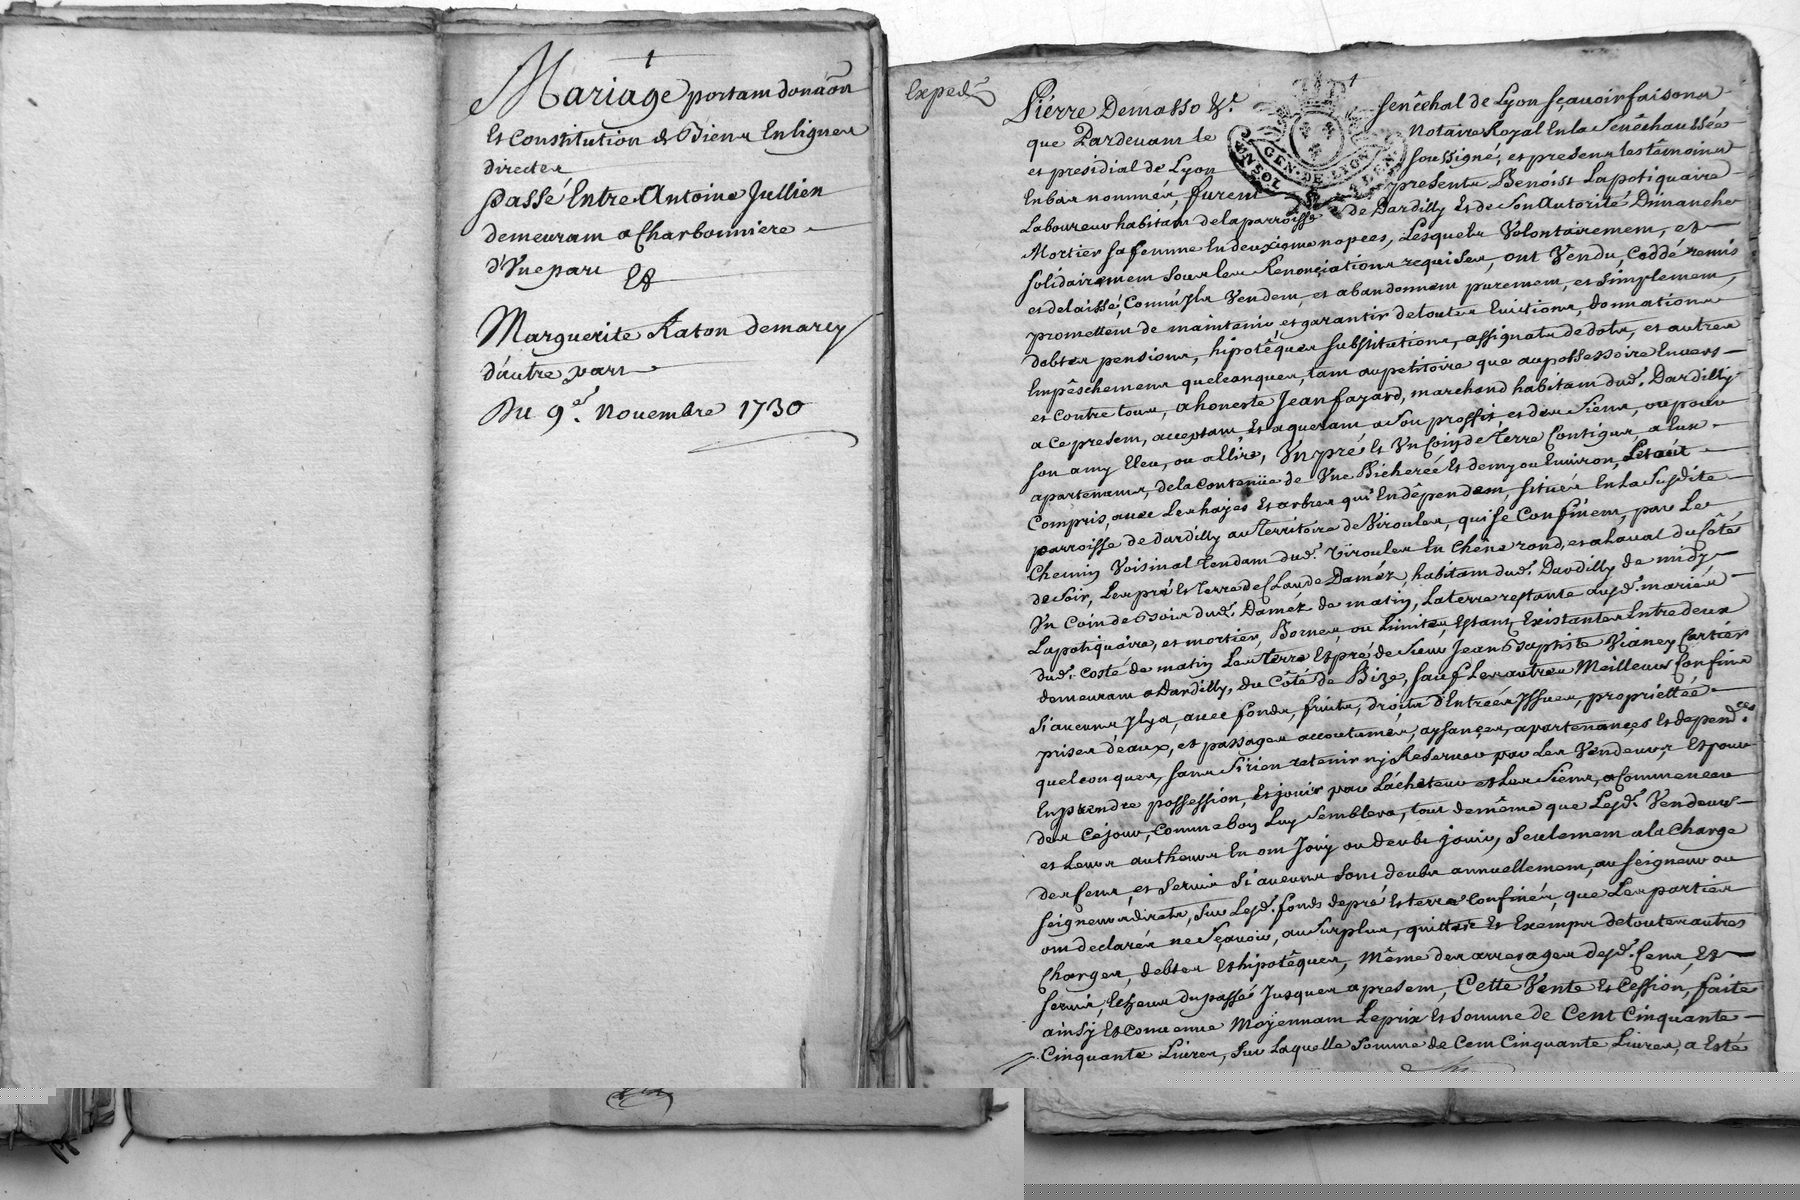 Mariage portant donáon
Et Constitution de Biens En ligne
directe
passé Entre Antoine Jullien
demeurant a Charbonniere
d'Une part
Et
Marguerite Raton demarcy
d'autre part
Du 9e. Novembre 1730
Expedé
Pierre Demasso &c. Senêchal de Lyon sçavoir faisons
que Pardevant le Notaire Royal En la Senêchaussée
et presidial de Lyon soussigné, et presens les têmoins
En bas nommés, furent presents Benoist Lapotiquaire
Laboureur habitant de la parroisse de Dardilly Et de Son Autorité Dimanche
Mortier sa femme En deuxieme nopces, Lesquels Volontairement, et
solidairement sous les Renonciations requises, ont Vendu, Ceddé remis
et delaissé, Comme Ils Vendent, et abandonnent purement, et simplement,
promettent de maintenir, et garantir de toutes Euictions, donnations
debtes pensions, hipotêques substitutions, assignats de dots, et autres
Empêschements quelconques, tant au petitoire que au possessoire Envers
et contre tous, a honeste Jean fayard, marchand habitant dud. Dardilly
a ce present, acceptant Et aquerant a Son proffit et des Siens, ou pour
son amy Eleu, ou a Elire, Un pré Et Un Coin de Terre Contigus, a Eux
apartenants, de la Contenüe de Une Bicherée Et demy ou Environ, Le tout
Compris, avec Les hayes Et arbres qui En dêpendent, situés En La Susdite
parroisse de dardilly au Territoire de Viroules, qui se Confinent, par Le
Chemin Voisinal tendant dud. Viroules En Chêne rond, et a Laval du Côté
de Soir, Les pré Et terre de Claude Daméz, habitant dud. Dardilly de midy
Un Coin de Bois dud. Daméz de matin, La terre restante ausd. mariés
Lapotiquaire, et mortier, Bornes, ou Limites, Estant Existantes Entre deux
dud. costé de matin Les Terre Et pré de Sieur Jean Baptiste Vianey Cartier
demeurant a Dardilly, du Côté de Bize, sauf Les autres Meilleurs Confins
S'aucuns Il y a, avec fonds, fruits, droits d'Entrées Issues, proprietteé
prises d'eaux, et passages accoutumés, aysances, apartenances Et depend.ces
quelconques, sans S'i rien retenir nj Reserver par Les Vendeurs, Et pour
En prendre possession, Et jouir par L'acheteur et Les Siens, a Commencer
des Ce jour, comme bon Luy Semblera, tout de même que Lesd. Vendeurs
et Leurs autheurs En ont Jouy ou deub jouir, Seulement a la Charge
des Cens, et Servis Si aucuns sont deubs annuellement, au seigneur ou
seigneurs directs, Sur Lesd. fonds de pré Et terre Confinés, que Les parties
ont declarés ne Sçavoir, au Surplus, quittes Et Exempts de toutes autres
Charges, debtes Et hipotêques, Même des arrerages desd. Cens, Et
Servis, Echeus du passé Jusques a present, Cette Vente Et Cession, faite
ainsy Et convenue Moyennant Le prix Et Somme de Cent Cinquante
Cinquante Livres, Sur Laquelle Somme de Cent Cinquante Livres, a Esté